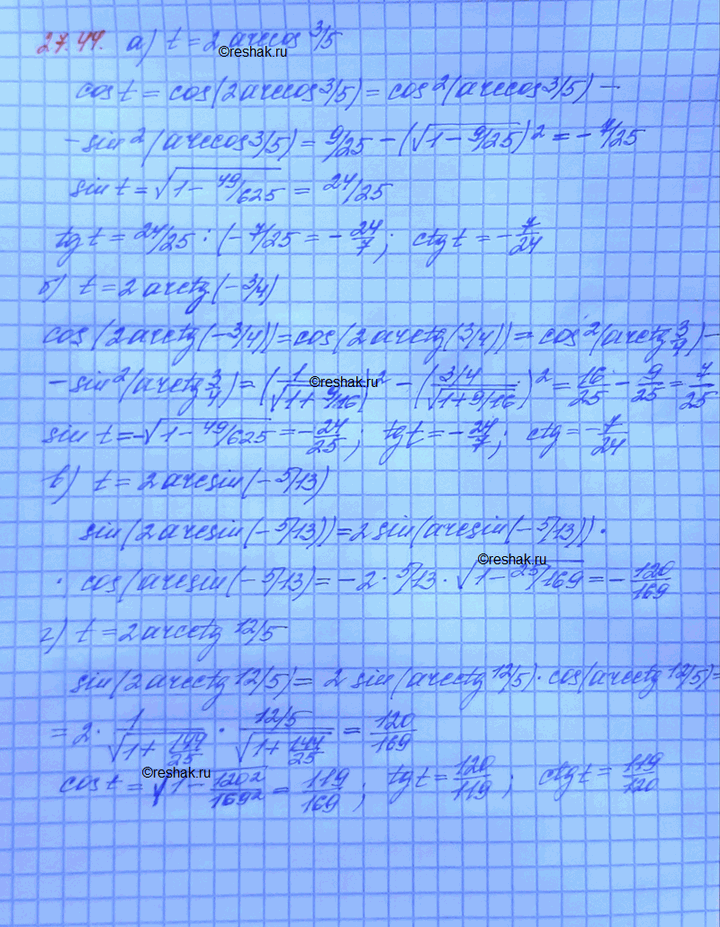 27.44. а) t = 2 arccos 3/5
©reshak.ru
cos t = cos(2 arccos 3/5) = cos²(arccos 3/5) −
− sin²(arccos 3/5) = 9/25 − (√(1 − 9/25))² = −7/25
sin t = √(1 − 49/625) = 24/25
tg t = 24/25 : (−7/25 = −24/7; ctg t = −7/24
б) t = 2 arctg(−3/4)
cos(2 arctg(−3/4)) = cos(2 arctg(3/4)) = cos²(arctg 3/4) −
− sin²(arctg 3/4) = (1/√(1 + 9/16))² − (3/4/√(1 + 9/16))² = 16/25 − 9/25 = 7/25
©reshak.ru
sin t = −√(1 − 49/625) = −24/25; tg t = −24/7; ctg = −7/24
в) t = 2 arcsin(−5/13)
sin(2 arcsin(−5/13)) = 2 sin(arcsin(−5/13)) ·
©reshak.ru
· cos(arcsin(−5/13) = −2 · 5/13 · √(1 − 25/169) = −120/169
г) t = 2 arcctg 12/5
sin(2 arcctg 12/5) = 2 sin(arcctg 12/5) · cos(arcctg 12/5) =
= 2 · 1/√(1 + 144/25) · 12/5/√(1 + 144/25) = 120/169
©reshak.ru
cos t = √(1 − 120²/169²) = 119/169; tg t = 120/119; ctg t = 119/120